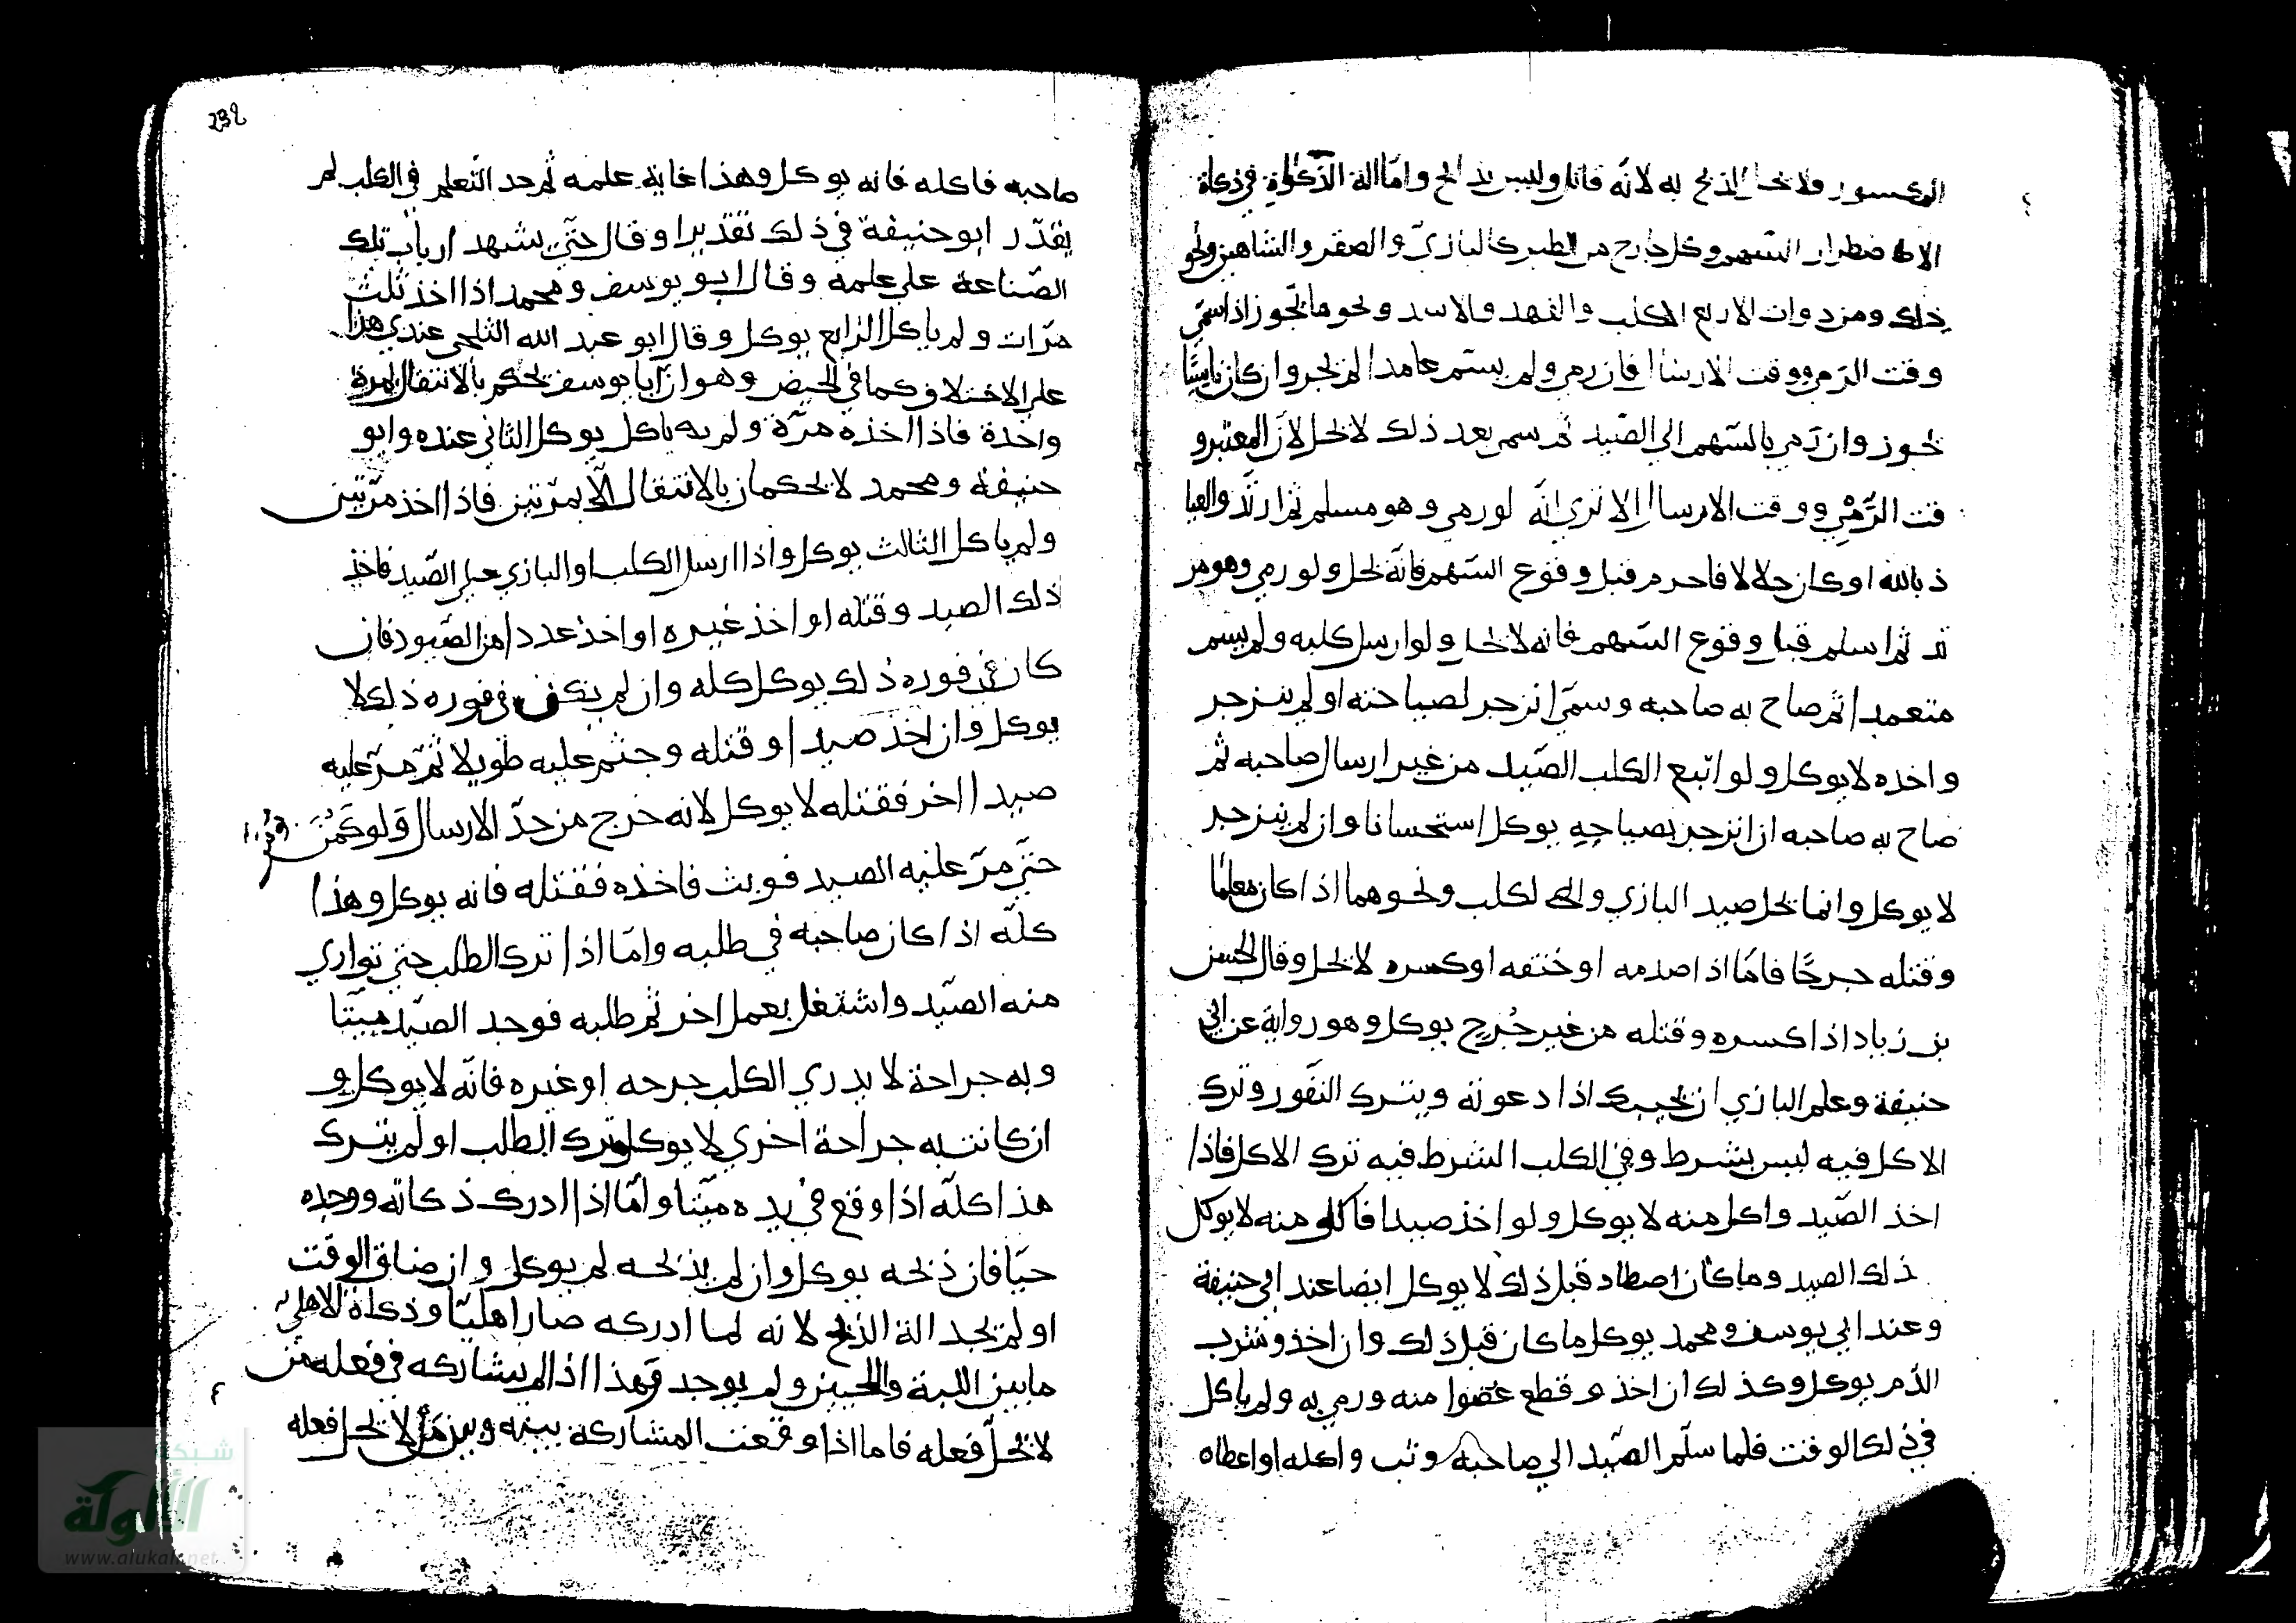 المكسور ولا يحل الذبح به لانه قاتل وليس بذابح واما الة الذكاة في ذكاة
الاضطرار السهم وكل جارح من الطير كالبازي والصقر والشاهين ونحو
ذلك ومن ذوات الاربع الكلب والفهد والاسد ونحوها يجوز اذا سمّي
وقت الرمي ووقت الارسال فان رمي ولم يسم عامدا لم يجز وان كان ناسيًا
يجوز وان رمي بالسّهم الي الصّيد ثم سمي بعد ذلك لا يحل لانّ المعتبر و
قت الرّمْي ووقت الارسال الا تري انّه لو رمي وهو مسلم ثم ارتدّ والعيا
ذ بالله او كان حلالا فاحرم قبل وقوع السّهم فانّه يحل ولو رمي وهو مر
تد ثم اسلم قبل وقوع السّهم فانه لا يحل ولو ارسل كلبه ولم يسم
متعمدا ثم صاح به صاحبه وسمّي انزجر لصياحته او لم ينزجر
واخذه لا يوكل ولو اتبع الكلب الصّيد من غير ارسال صاحبه ثم
صاح به صاحبه ان انزجر بصياحه يوكل استحسانا وان لم ينزجر
لا يوكل وانما يحل صيد البازي والكلب ونحوهما اذا كان معلمًا
وقتله جرحًا فامّا اذا صدمه او خنقه او كسره لا يحل وقال الحسن
بن زياد اذا كسره وقتله من غير جُرحٍ يوكل وهو رواية عن ابي
حنيفة وعلم البازي ان يجيبك اذا دعوته ويترك النفور وترك
الاكل فيه ليس بشرط وفي الكلب الشرط فيه ترك الاكل فاذا
اخذ الصّيد واكل منه لا يوكل ولو اخذ صيدا فاكل منه لا يوكل
ذلك الصيد وما كان اصطاد قبل ذلك لا يوكل ايضا عند ابي حنيفة
وعند ابي يوسف ومحمد يوكل ما كان قبل ذلك وان اخذ وشرب
الدّم يوكل وكذلك ان اخذ و قطع عضوا منه ورمي به ولم ياكل
في ذلك الوقت فلما سلّم الصّيد الي صاحبه وثب واكله او اعطاه
232
صاحبه فاكله فانه يوكل وهذا غاية علمه ثم حد التّعلم في الكلب لم
يقدّر ابو حنيفة في ذلك تقديرا وقال حتّي يشهد ارباب تلك
الصّناعة علي علمه وقال ابو يوسف ومحمد اذا اخذ ثلث
مرّات ولم ياكل الرابع يوكل وقال ابو عبد الله الثلجي عندي هذا
علي الاختلاف كما في الحيض وهو ان ابا يوسف يحكم بالانتقال لمرة
واحدة فاذا اخذه مرّة ولم ياكل يوكل الثاني عنده وابو
حنيفة ومحمد لا يحكمان بالانتقال الّا بمرّتين فاذا اخذ مرّتين
ولم ياكل الثالث يوكل واذا ارسل الكلب او البازي علي الصّيد فاخذ
ذلك الصيد وقتله او اخذ غيره او اخذ عددا من الصّيود فان
كان في فوره ذلك يوكل كله وان لم يكن في فوره ذلك لا
يوكل وان اخذ صيدا وقتله وجثم عليه طويلا ثمّ مرّ عليه
صيدا اخر فقتله لا يوكل لانه خرج من حدّ الارسال وَلو كَمُنَ
حتّي مرّ عليه الصيد فوثب فاخذه فقتله فانه يوكل وهذا
كلّه اذا كان صاحبه في طلبه وامّا اذا ترك الطلب حتي تواري
منه الصّيد واشتغل بعمل اخر ثم طلبه فوجد الصّيد ميّتا
وبه جراحة لا يدري الكلب جرحه او غيره فانّه لا يوكل و
ان كانت به جراحة اخري لا يوكل ترك الطلب او لم يترك
هذا كلّه اذا وقع في يده ميّتا وامّا اذا ادرك ذكاته ووجده
حيّا فان ذبحه يوكل وان لم يذبحه لم يوكل وان ضاق الوقت
او لم يجد الة الذبح لانه لما ادركه صار اهليّا وذكاة الاهلي
ما بين اللبة واللحيين ولم يوجد وهذا اذا لم يشاركه في فعله من
لا يحلّ فعله فاما اذا وقعت المشاركة بينه وبين من لا يحل فعله
شبكة
الألوكة
www.alukah.net